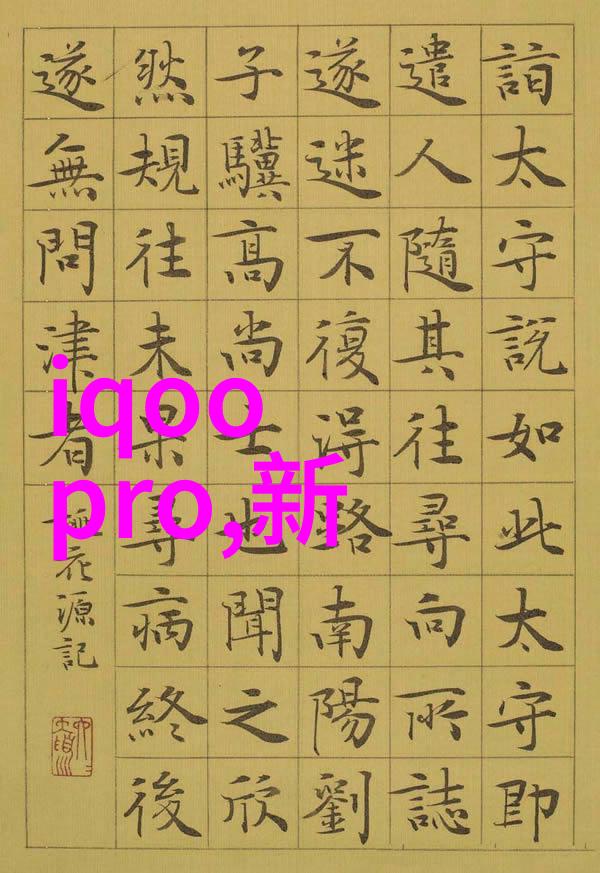 詣太守說如此太守即
遣人隨其往尋向所誌
遂迷不復得路南陽劉
子驥高尚士也聞之欣
然規往未果尋病終後
遂無問津者
桃花源記
iqoo
pro,新